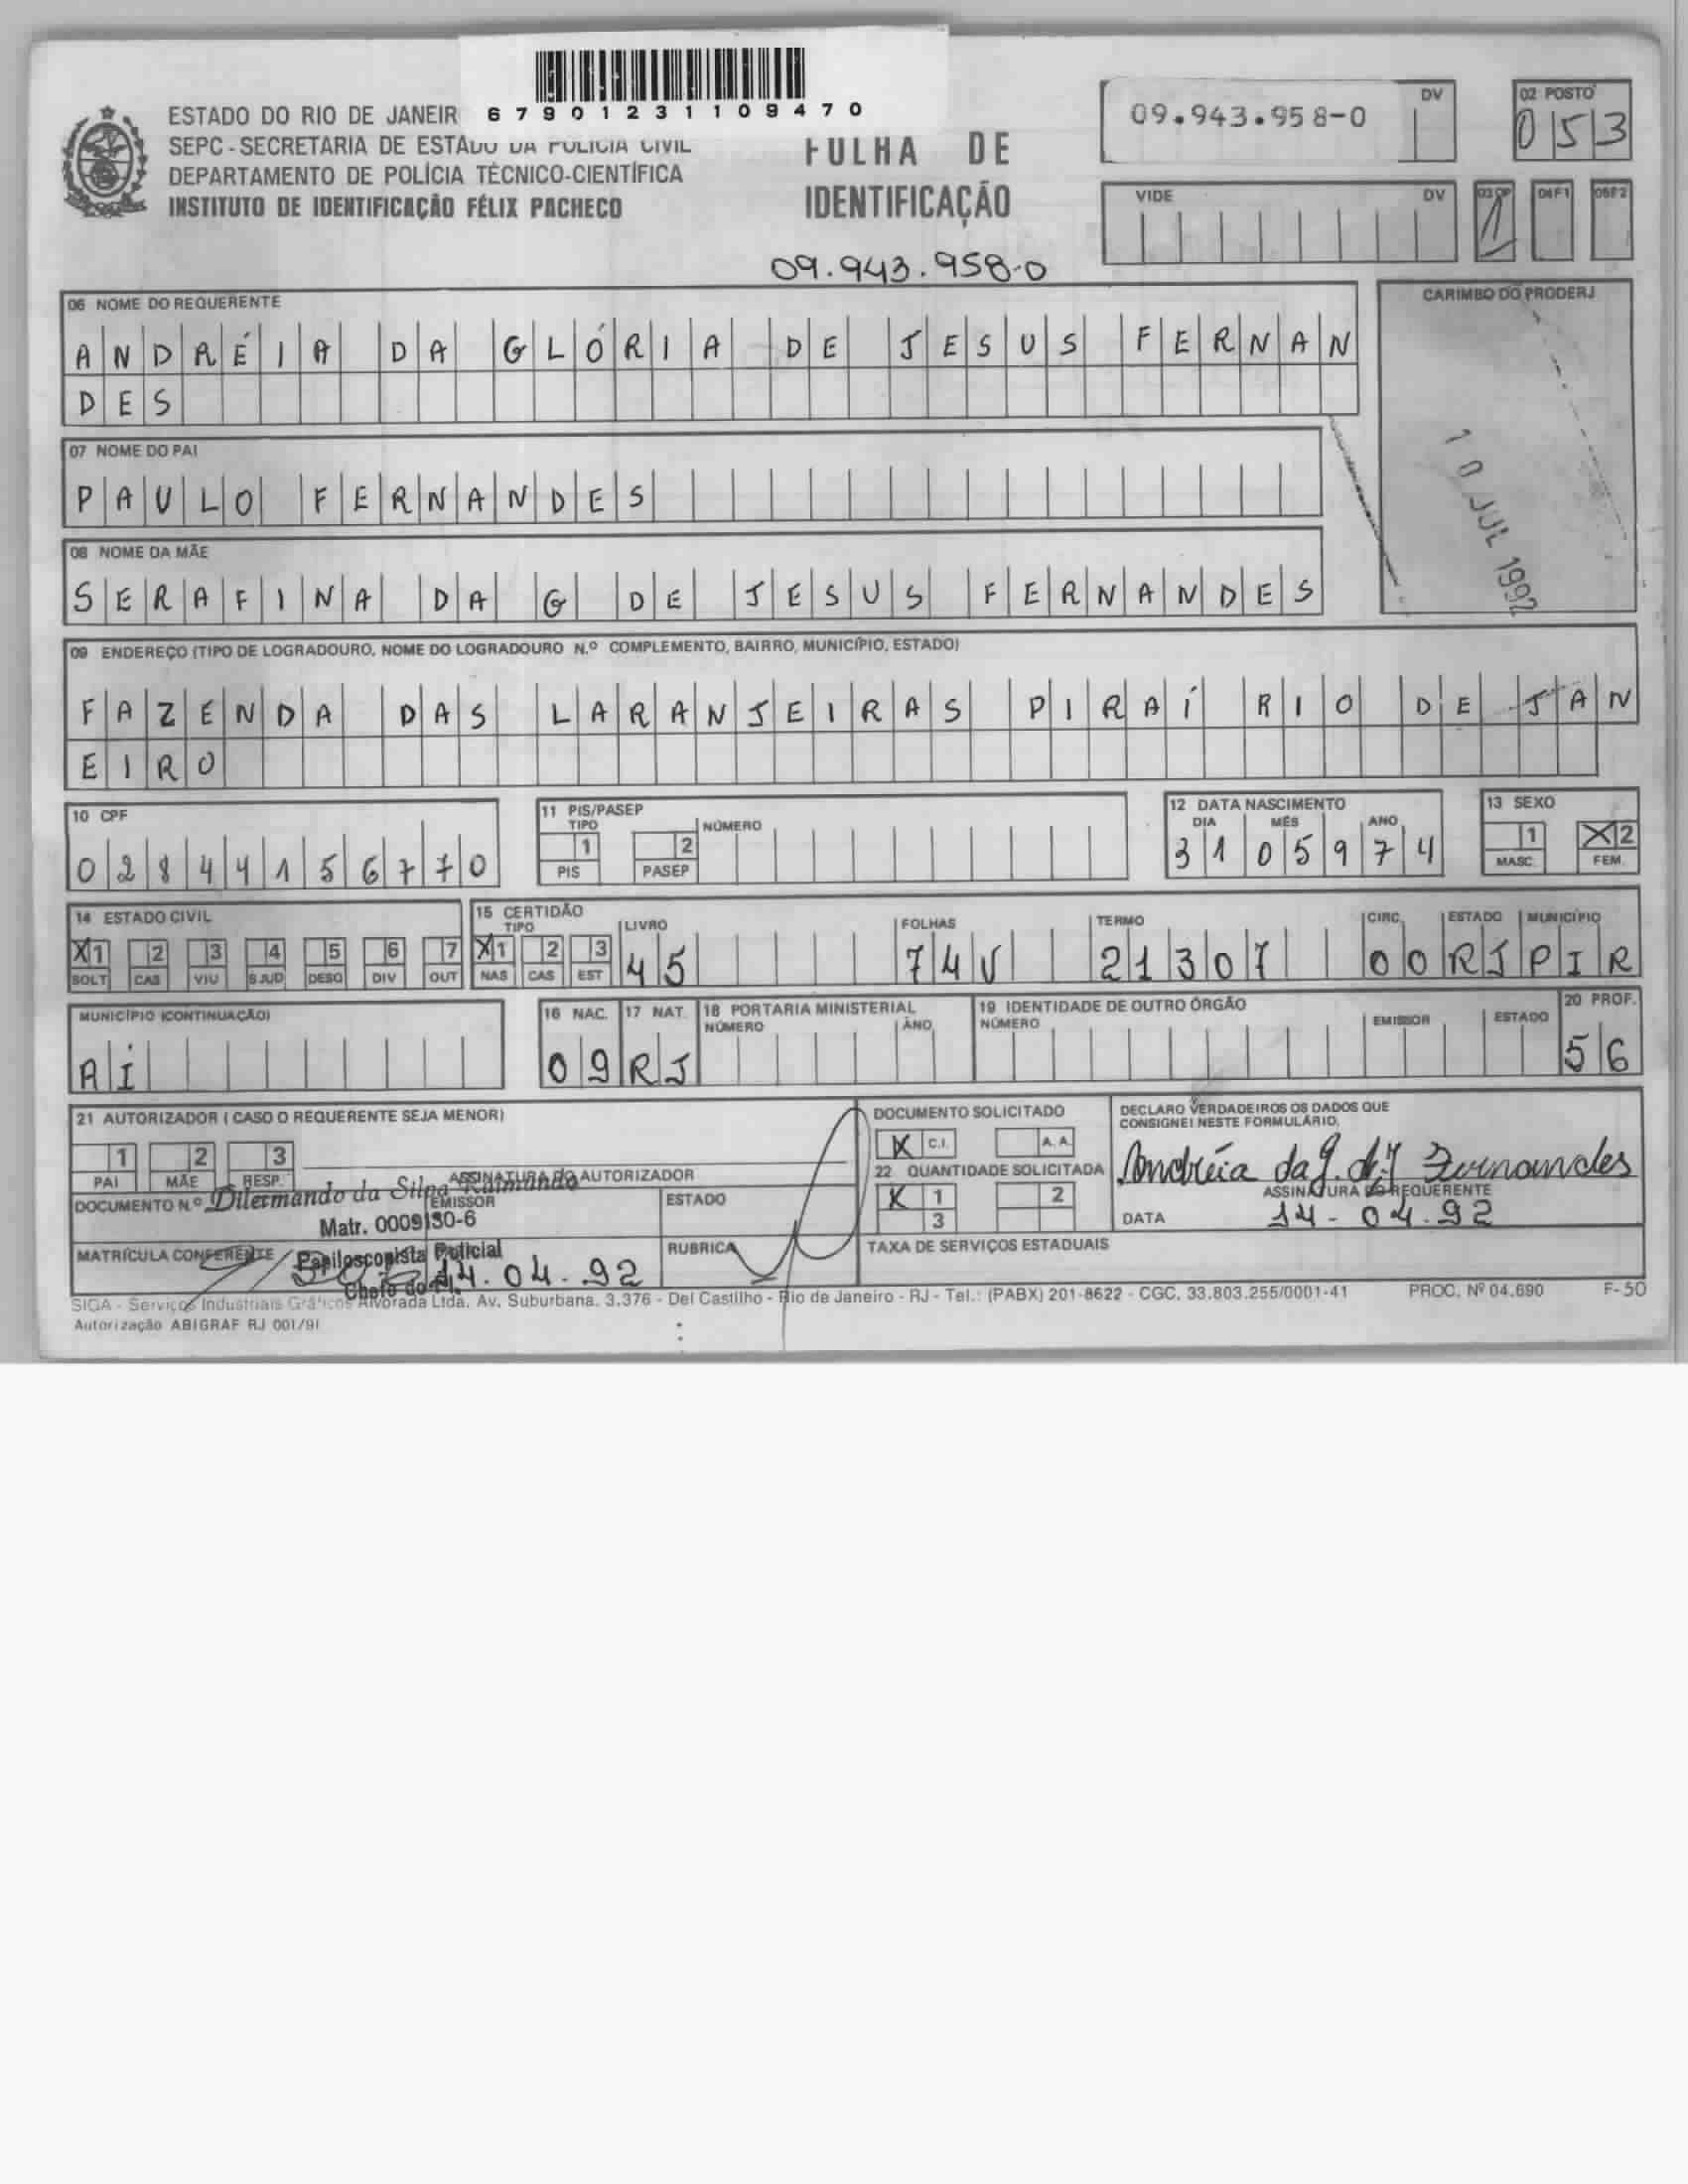 67901231109470
ESTADO DO RIO DE JANEIR
SEPC - SECRETARIA DE ESTADO DA POLÍCIA CIVIL
DEPARTAMENTO DE POLÍCIA TÉCNICO-CIENTÍFICA
INSTITUTO DE IDENTIFICAÇÃO FÉLIX PACHECO
FOLHA DE
IDENTIFICAÇÃO
09.943.958-0 DV
02 POSTO
053
VIDE DV 03 OP 04 F1 05 F2
1
09.943.958-0
06 NOME DO REQUERENTE
ANDRÉIA DA GLÓRIA DE JESUS FERNAN
DES
CARIMBO DO PRODERJ
10 JUL 1992
07 NOME DO PAI
PAULO FERNANDES
08 NOME DA MÃE
SERAFINA DA G DE JESUS FERNANDES
09 ENDEREÇO (TIPO DE LOGRADOURO, NOME DO LOGRADOURO N.º COMPLEMENTO, BAIRRO, MUNICÍPIO, ESTADO)
FAZENDA DAS LARANJEIRAS PIRAÍ RIO DE JAN
EIRO
10 CPF
02844156770
11 PIS/PASEP
TIPO NÚMERO
1 2
PIS PASEP
12 DATA NASCIMENTO
DIA MÊS ANO
3105974
13 SEXO
1 X 2
MASC. FEM.
14 ESTADO CIVIL
X 1 2 3 4 5 6 7
SOLT CAS VIU SJUD DESQ DIV OUT
15 CERTIDÃO
TIPO LIVRO FOLHAS TERMO CIRC. ESTADO MUNICÍPIO
X 1 2 3 45 74V 21307 00 RJ PIR
NAS CAS EST
MUNICÍPIO (CONTINUAÇÃO)
AÍ
16 NAC.
09
17 NAT.
RJ
18 PORTARIA MINISTERIAL
NÚMERO ANO
19 IDENTIDADE DE OUTRO ÓRGÃO
NÚMERO EMISSOR ESTADO
20 PROF.
56
21 AUTORIZADOR ( CASO O REQUERENTE SEJA MENOR)
1 2 3
PAI MÃE RESP.
ASSINATURA DO AUTORIZADOR
DOCUMENTO N.º EMISSOR ESTADO
Dilermando da Silva Raimundo
Matr. 0009130-6
Papiloscopista Policial
MATRÍCULA CONFERENTE
14.04.92
RUBRICA
DOCUMENTO SOLICITADO
X C.I. A.A.
22 QUANTIDADE SOLICITADA
X 1 2
3
DECLARO VERDADEIROS OS DADOS QUE
CONSIGNEI NESTE FORMULÁRIO,
Andréia da G. de J Fernandes
ASSINATURA DO REQUERENTE
DATA 14-04.92
TAXA DE SERVIÇOS ESTADUAIS
SIGA - Serviços Industriais Gráficos Alvorada Ltda. Av. Suburbana, 3.376 - Del Castilho - Rio de Janeiro - RJ - Tel.: (PABX) 201-8622 - CGC. 33.803.255/0001-41 PROC. Nº 04.690 F-50
Autorização ABIGRAF RJ 001/91